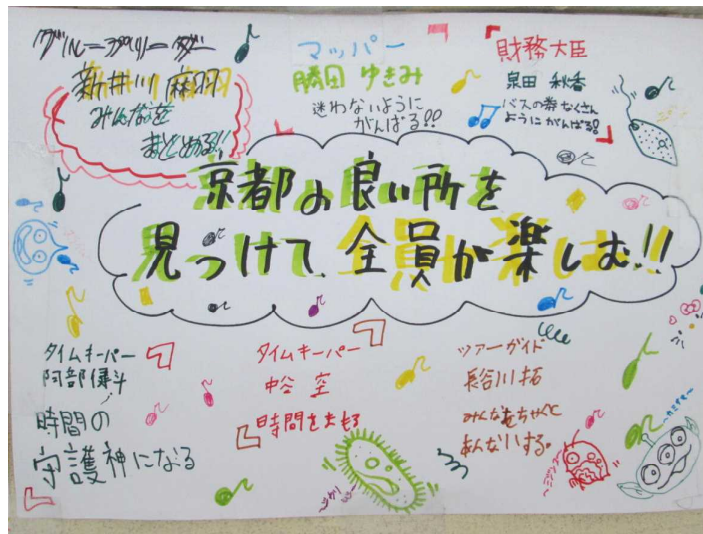 グループリーダー
新井川 麻羽
みんなを
まとめる!!
マッパー
勝田 ゆきみ
迷わないように
がんばる!!
財務大臣
泉田 秋香
バスの券なくさん
ようにがんばる!
京都の良い所を
見つけて 全員が楽しむ!!
タイムキーパー
阿部 健斗
時間の
守護神になる
タイムキーパー
中谷 空
時間をまもる
ツアーガイド
長谷川 拓
みんなをちゃんと
あんないする。